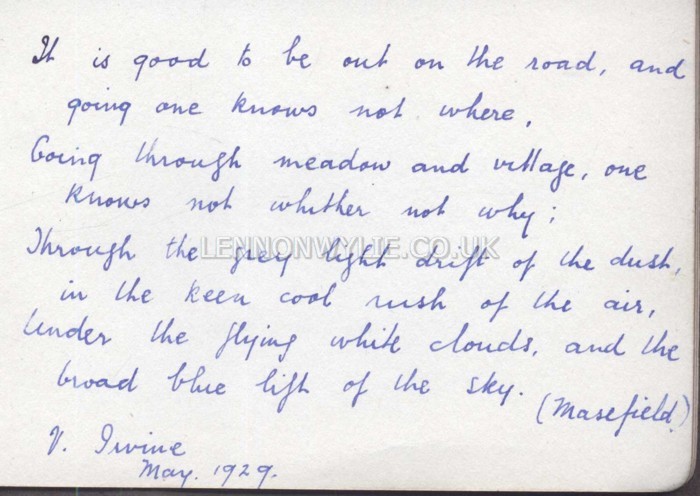 It is good to be out on the road, and
going one knows not where,
Going through meadow and village, one
knows not whither not why;
Through the grey light drift of the dust,
LENNONWYLIE.CO.UK
in the keen cool rush of the air,
Under the flying white clouds, and the
broad blue lift of the sky.
(Masefield.)
V. Irvine
May. 1929.